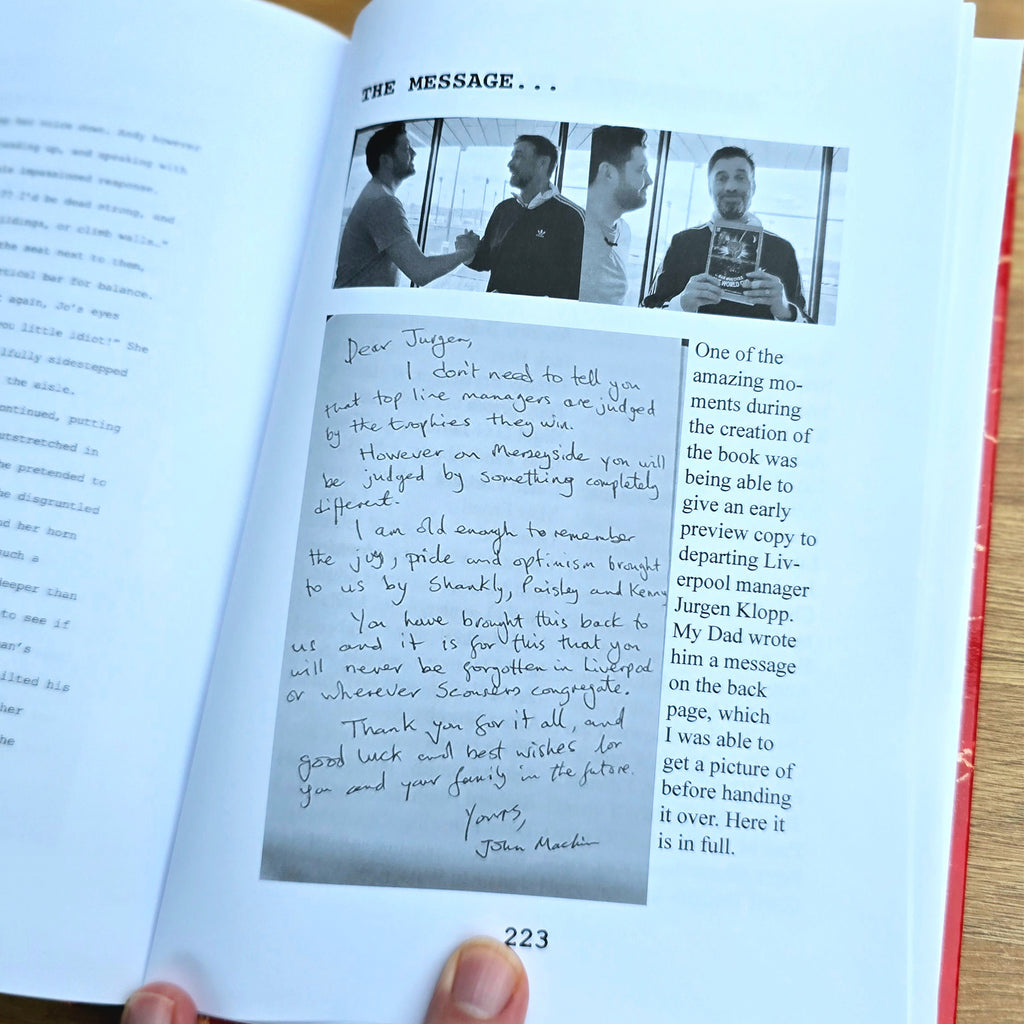 her voice down. Andy however
up, and speaking with
impassioned response.
I'd be dead strong, and
or climb walls."
the seat next to them,
bar for balance.
again, Jo's eyes
you little idiot!" She
sidestepped
the aisle.
continued, putting
outstretched in
he pretended to
disgruntled
her horn
such a
deeper than
to see if
his
her
he
THE MESSAGE...
Dear Jurgen,
I don't need to tell you
that top line managers are judged
by the trophies they win.
However on Merseyside you will
be judged by something completely
different.
I am old enough to remember
the joy, pride and optimism brought
to us by Shankly, Paisley and Kenny
You have brought this back to
us and it is for this that you
will never be forgotten in Liverpool
or wherever Scousers congregate.
Thank you for it all, and
good luck and best wishes for
you and your family in the future.
Yours,
John Machin
One of the
amazing mo-
ments during
the creation of
the book was
being able to
give an early
preview copy to
departing Liv-
erpool manager
Jurgen Klopp.
My Dad wrote
him a message
on the back
page, which
I was able to
get a picture of
before handing
it over. Here it
is in full.
223